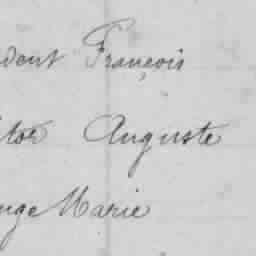 dent François
tor Auguste
ange Marie